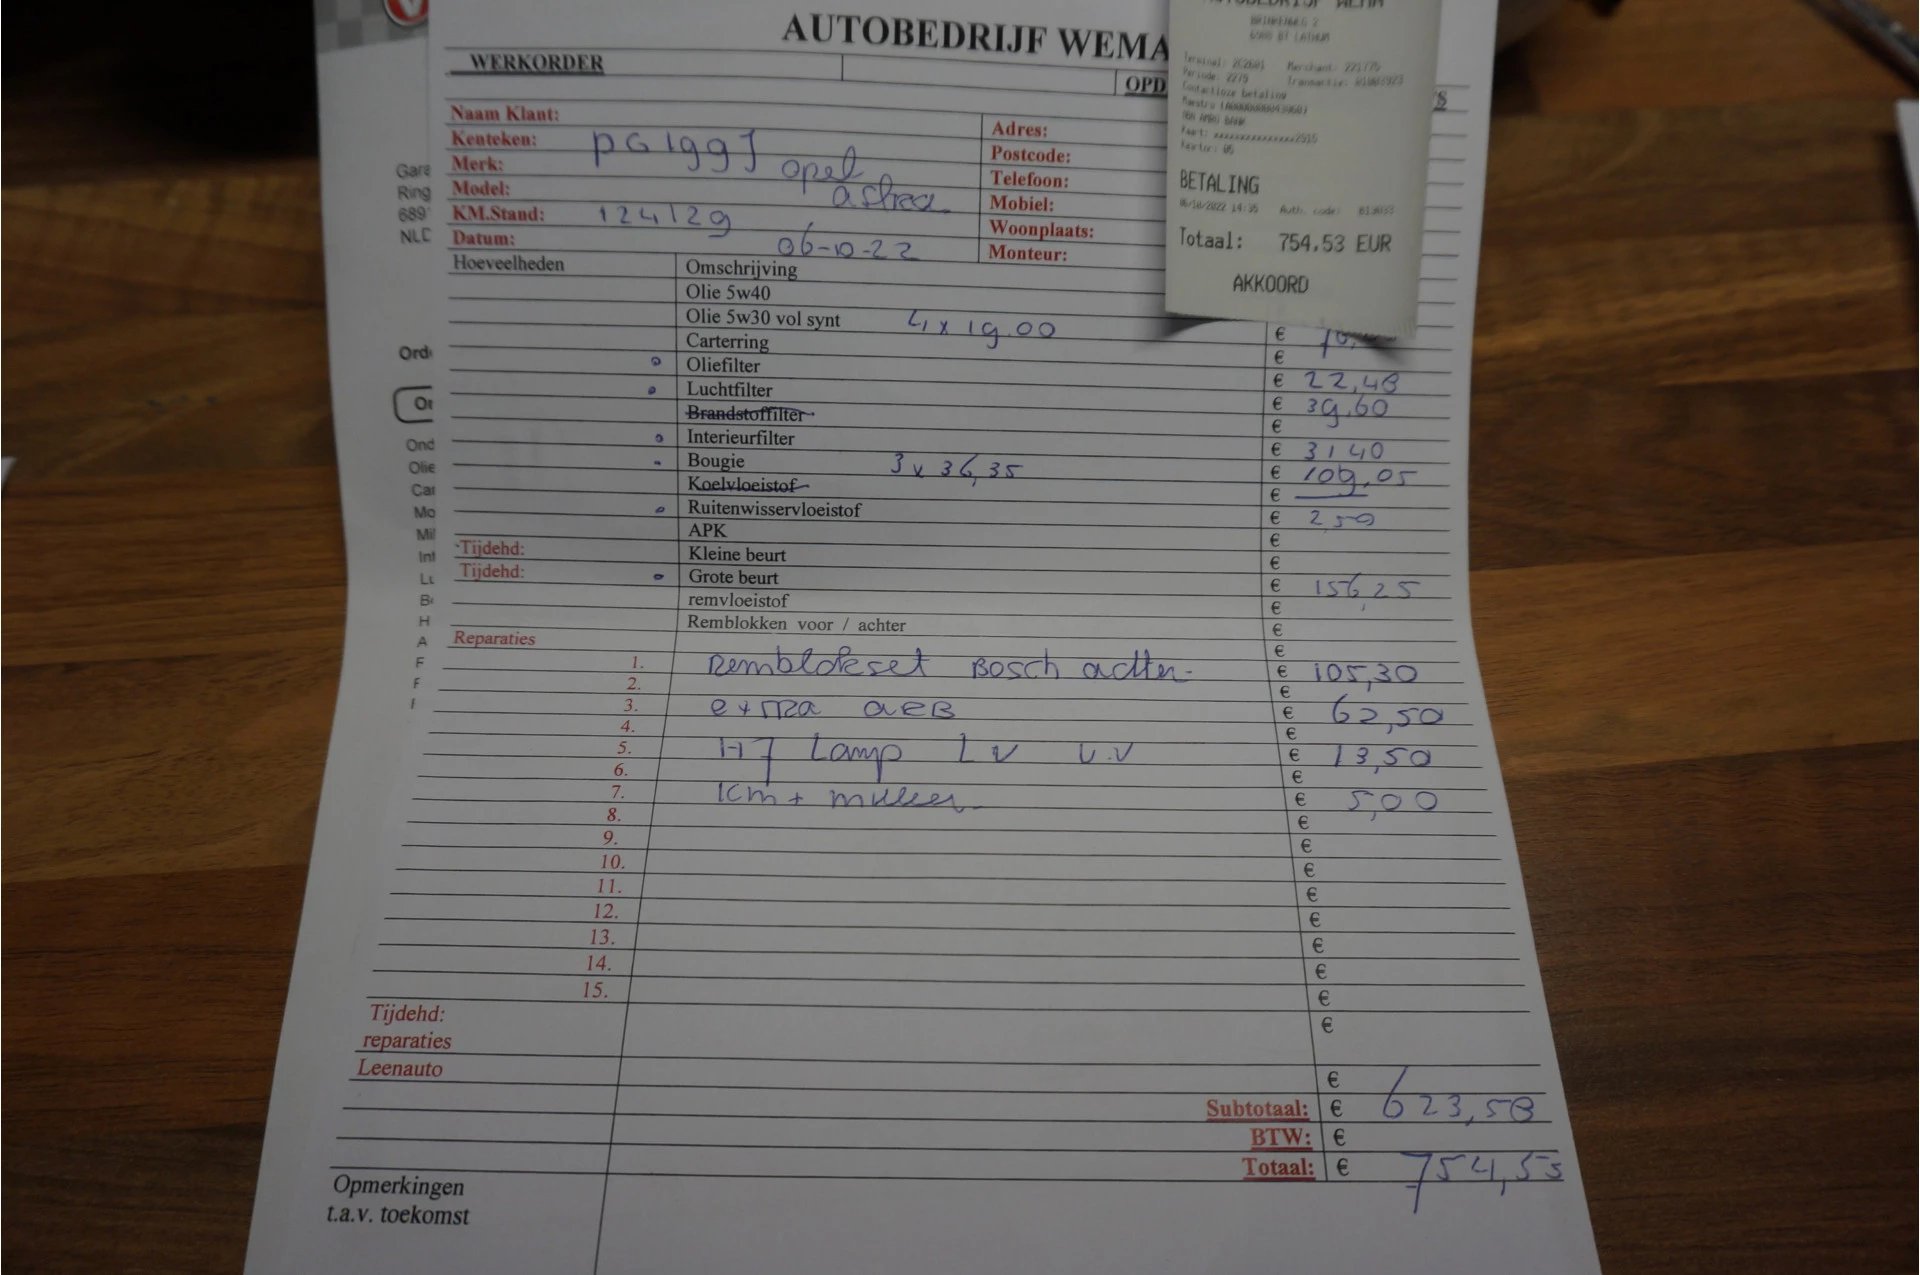 AUTOBEDRIJF WEMA
WERKORDER
OPD
Naam Klant:
Adres:
Kenteken: PG199J
Postcode:
Merk: opel
Telefoon:
Model: astra
Mobiel:
KM.Stand: 124129
Woonplaats:
Datum: 06-10-22
Monteur:
BETALING
06/10/2022 14:35 Auth. code:
Totaal: 754.53 EUR
AKKOORD
Hoeveelheden Omschrijving
Olie 5w40
Olie 5w30 vol synt 4 x 19.00 €
Carterring €
Oliefilter € 22,48
Luchtfilter € 39,60
Brandstoffilter €
Interieurfilter € 31 40
Bougie 3 x 36,35 € 109,05
Koelvloeistof €
Ruitenwisservloeistof € 2,50
APK €
Tijdehd: Kleine beurt €
Tijdehd: Grote beurt € 156,25
remvloeistof €
Remblokken voor / achter €
Reparaties €
1. Remblokset Bosch achter € 105,30
2. €
3. extra arb € 62,50
4. €
5. H7 Lamp LV U.V € 13,50
6. €
7. € 5,00
8. €
9. €
10. €
11. €
12. €
13. €
14. €
15. €
Tijdehd: €
reparaties
Leenauto €
Subtotaal: € 623,58
BTW: €
Totaal: € 754,53
Opmerkingen
t.a.v. toekomst
Gara
Ring
689
NLD
Ond
Olie
Car
Mo